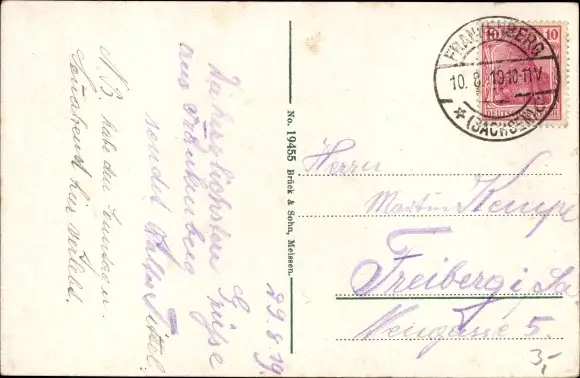 Die herzlichsten Grüße
aus Frankenberg
sendet
29.8.19.
N.B. habe den
hier verlebt.
No. 19455 Brück & Sohn, Meissen.
FRANKENBERG
10. 8. 19 10-11V
* (SACHSEN)
10 10
DEUTSCHES REICH
Herrn
Martin Kempe
Freiberg i. Sa
Neugasse 5.
3,-